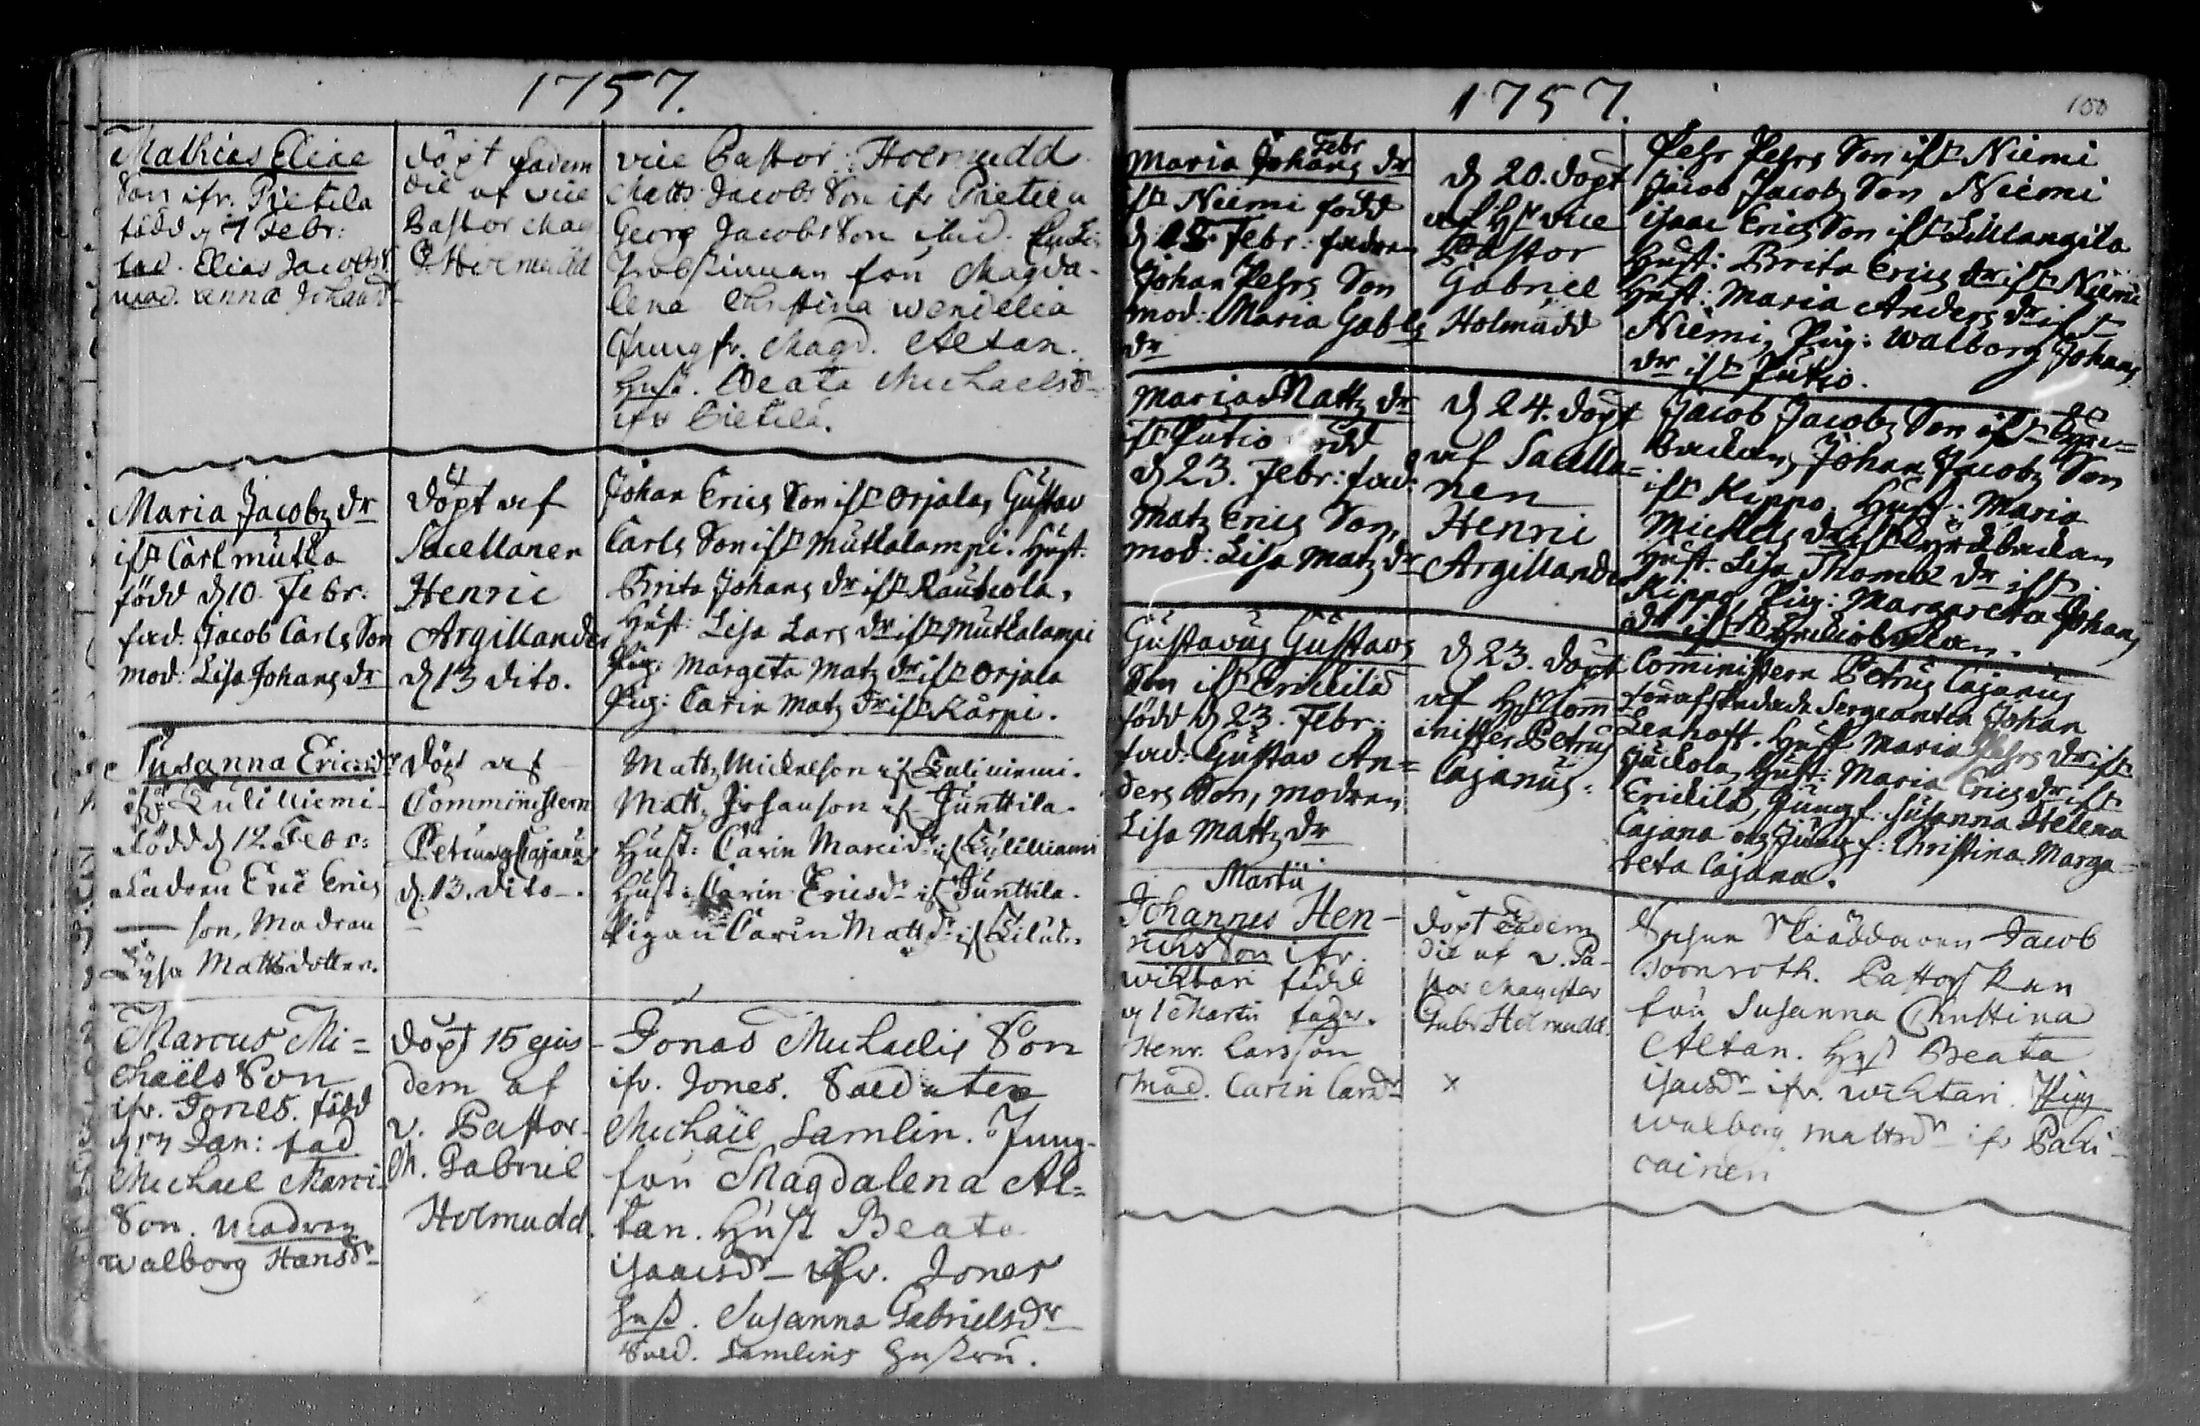 1757.
Mathias Eliae
Son ifr. Pietila
född d 7 Febr:
fad. Elias Jacobs S.
mod. Anna Johansd
döpt eadem
die af vice
Pastor Mag
G. Holmudd
vice Pastor: Holmudd
Matts Jacobs Son ifr Pietila
Georg Jacobs Son ibid.
Probstinnan fru Magda-
lena Christina Wendelia
Jungfr. Magd. Aletan.
Hust. Beata Michaelsdr
ifr Pietila.
Maria Jacobz dr
ifr Carlmutka
född d 10. Febr.
fad: Jacob Carls Son
mod: Lisa Johans dr
Döpt af
Sacellanen
Henric
Argillander
d 13 dito.
Johan Erics Son ifr Orjala, Gustav
Carls Son ifr Mutkalampi. Hust:
Brita Johans dr ifr Rautiola,
Hust: Lisa Lars dr ifr Mutkalampi
Pig: Margeta Matz dr ifr Orjala
Pig: Carin Matz dr ifr Kårpi.
Susanna Ericsdr
ifr Tuliniemi
Född d 12 Febr:
Fadren Eric Erics
son, Madran
Lysa Mattsdotter.
Döpt af
Comministern
Petrus Cajanus
d. 13. dito.
Matts Mickelson if Tuliniemi.
Matts Johanson if Junttila.
Hust: Carin Marcidr if Tuliniemi
Hust: Carin Ericsdr if Junttila.
Pigan Carin Mattsdr if
Marcus Mi=
chaëls Son
ifr. Jones. född
d Jan: fad
Michael Marci
Son. Madran
Walborg Hansdr
Döpt 15 ejus-
dem af
v. Pastor
M. Gabriel
Holmudd.
Jonas Michaelis Son
ifr. Jones. Soldaten
Michaël Lamlin. Jung-
fru Magdalena Al=
tan. Hust Beata
isaacsdr ifr. Jones
Hust. Susanna Gabrielsdr
Sold. Lamlins hustru.
1757.
100
Febr
Maria Johans dr
ifr Niemi född
d 18. Febr: fadren
Johan Pehrs Son
mod: Maria Gabls
dr
d 20. döpt
af Hr vice
Pastor
Gabriel
Holmudd
Pehr Pehrs Son ifr Niemi
Jacob Jacobz Son Niemi
isaac Erics Son ifr Lillångila
Hust: Brita Erics dr ifr Niemi
Hust: Maria Anders dr ifr
Niemi, Pig: Walborg Johans
dr ifr Jutio.
Maria Mattz dr
ifr Jutio född
d 23. Febr: fad:
Matz Erics Son,
mod: Lisa Matz dr
d 24. döpt
af Sacella=
nen
Henric
Argillander
Jacob Jacobz Son ifr
backan, Johan Jacobz Son
ifr Kippo, Hust: Maria
Mickels dr ifr
Hust. Lisa Thomæ dr ifr.
Kippo, Pig: Margareta Johans
dr ifr
Gustavus Gustavs
Son ifr Erickilä
född d 23. Febr:
fad: Gustav An=
ders Son, modren
Lisa Mattz dr
d 23. döpt
af Hr Com̄
inister Petrus
Cajanus.
Cominištern Petrus Cajanus
för afskedade Sergeanten Johan
Lenhoff. Hust Maria Pehrs dr ifr
Jäckola, Hust: Maria Erics dr ifr
Erickilä, Jungf: Susanna Helena
Cajana och Jungf: Christina Marga=
reta Cajana.
Martii
Johannes Hen-
richs Son ifr.
Wiktari född
d 1 Martii fadr.
Henr. Larsson
mod. Carin Larsdr
Döpt eadem
die af v. Pa-
stor Magister
Gabr Holmudd.
x
Socken Skräddaren Jacob
Soonroth. Pastorskan
fru Susanna Christina
Aletan. Hust Beata
isacsdr ifr. Wiktari. Pig
Walborg Mattsdr ifr Paki-
cainen